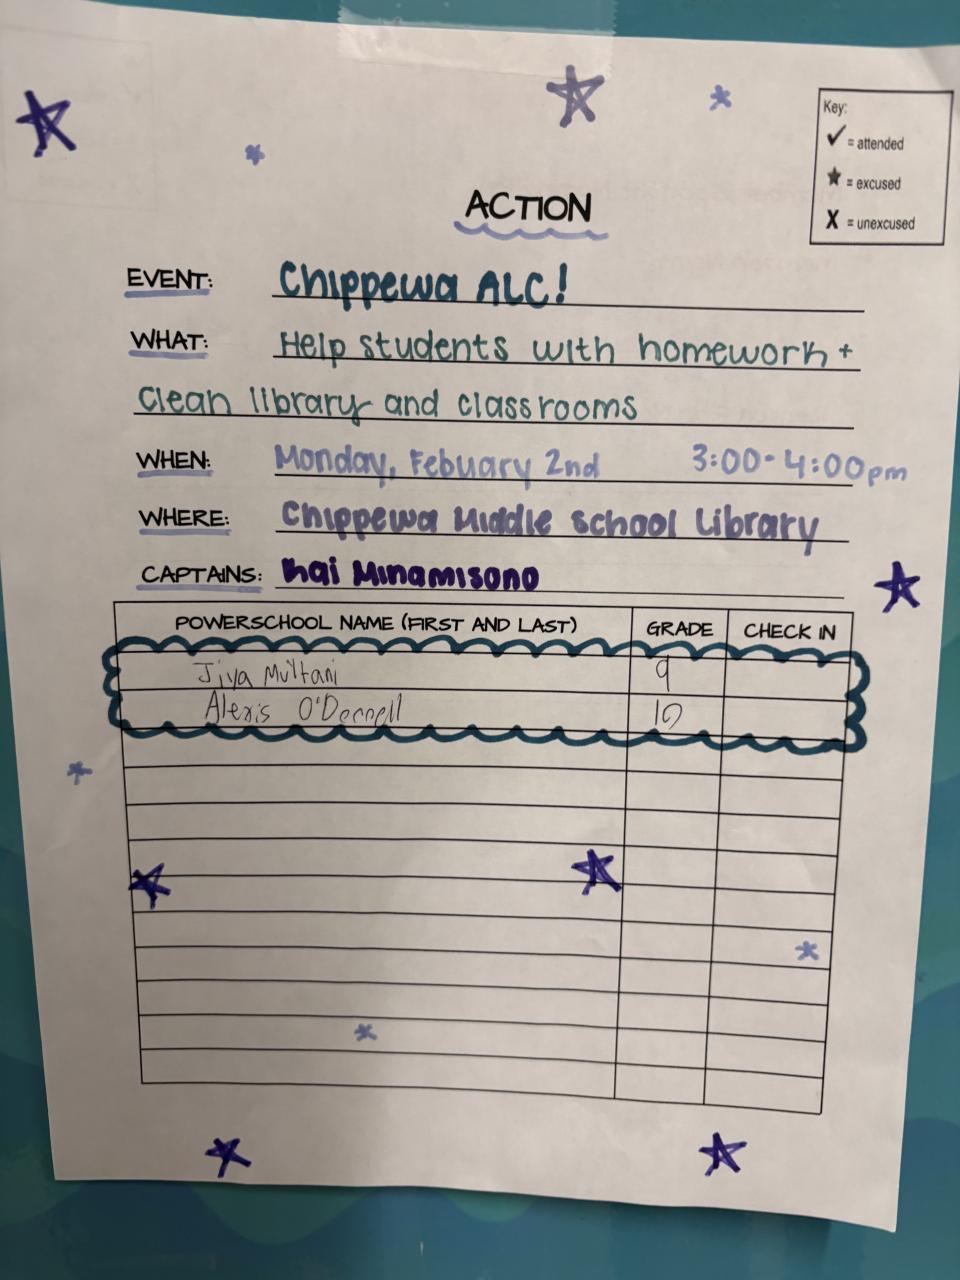 Key:
✓ = attended
★ = excused
X = unexcused
ACTION
EVENT: Chippewa ALC!
WHAT: Help students with homework +
Clean library and classrooms
WHEN: Monday, Febuary 2nd 3:00-4:00pm
WHERE: Chippewa Middle School Library
CAPTAINS: Kai Minamisono
POWERSCHOOL NAME (FIRST AND LAST) GRADE CHECK IN
Jiya Multani 9
Alexis O'Donnell 10